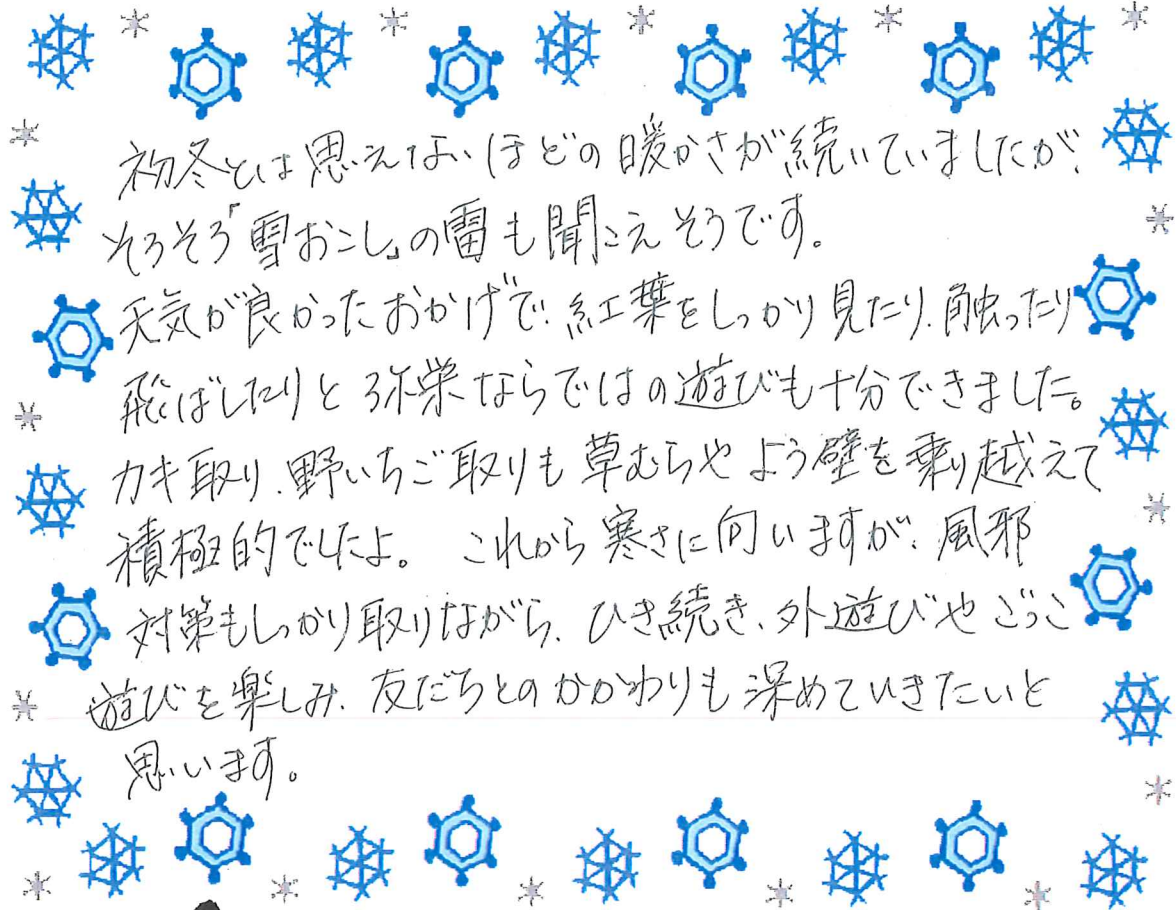 初冬とは思えないほどの暖かさが続いていましたが、
そろそろ「雪おこし」の雷も聞こえそうです。
天気が良かったおかげで、紅葉をしっかり見たり、触ったり
飛ばしたりと弥栄ならではの遊びも十分できました。
カキ取り、野いちご取りも草むらやよう壁を乗り越えて
積極的でしたよ。 これから寒さに向いますが、風邪
対策もしっかり取りながら、ひき続き、外遊びやごっこ
遊びを楽しみ、友だちとのかかわりも深めていきたいと
思います。